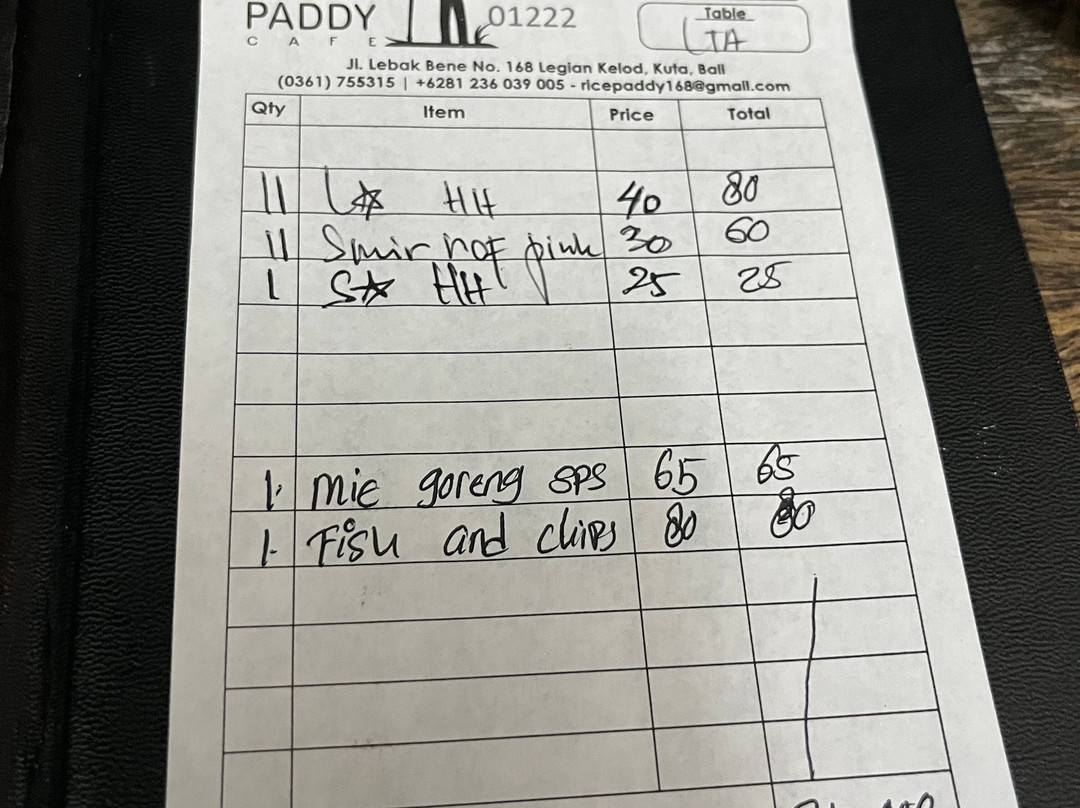 PADDY
CAFE
01222
Table
LTA
Jl. Lebak Bene No. 168 Legian Kelod, Kuta, Bali
(0361) 755315 | +6281 236 039 005 - ricepaddy168@gmail.com
Qty Item Price Total
II L☆ HH 40 80
II Smirnof pink 30 60
I S☆ HH 25 25
1. mie goreng sps 65 65
1. Fish and chips 80 80